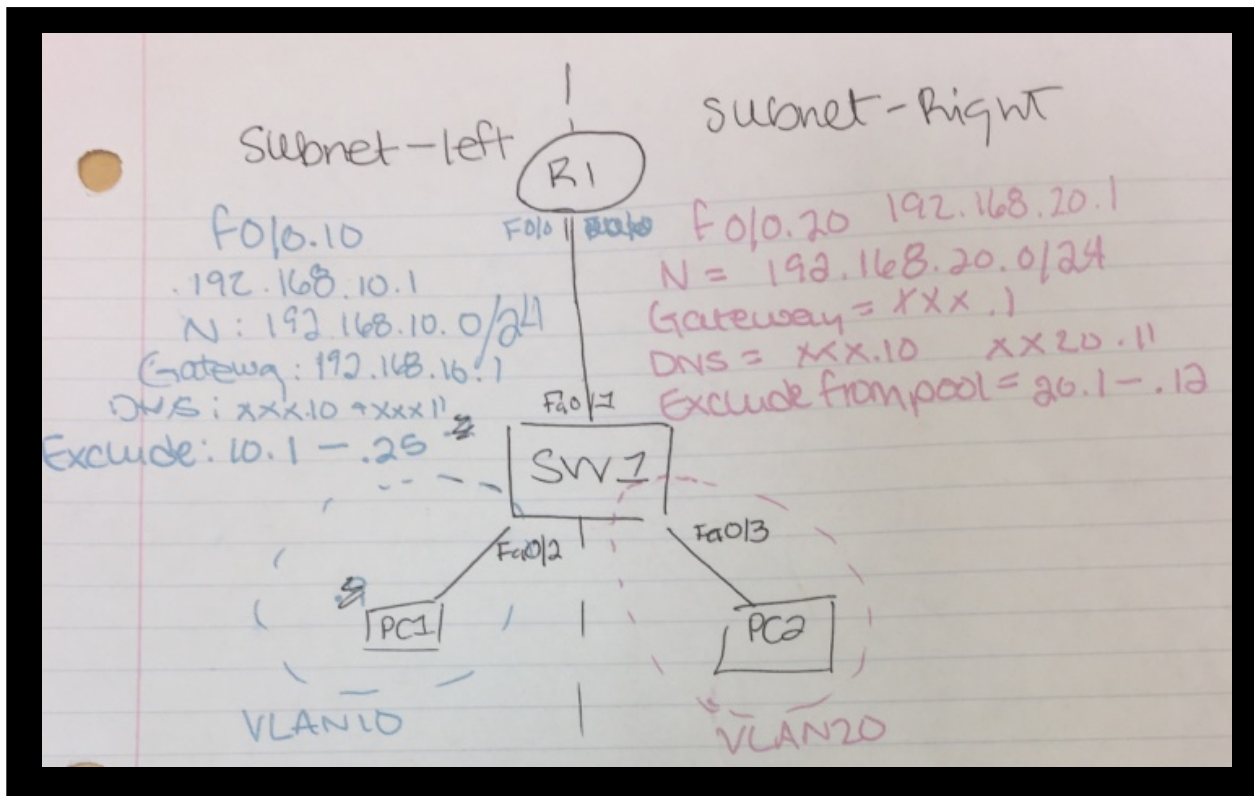 Subnet-left
Subnet-Right
R1
F0/0
F0/0.10
192.168.10.1
N: 192.168.10.0/24
Gatewa: 192.168.10.1
DNS: xxx.10 + xxx11
Exclude: 10.1 - .25
F0/0.20 192.168.20.1
N = 192.168.20.0/24
Gateway = XXX.1
DNS = XXX.10 XX20.11
Exclude from pool = 20.1 - .12
Fa0/1
SW1
Fa0/2
Fa0/3
PC1
PC2
VLAN10
VLAN20